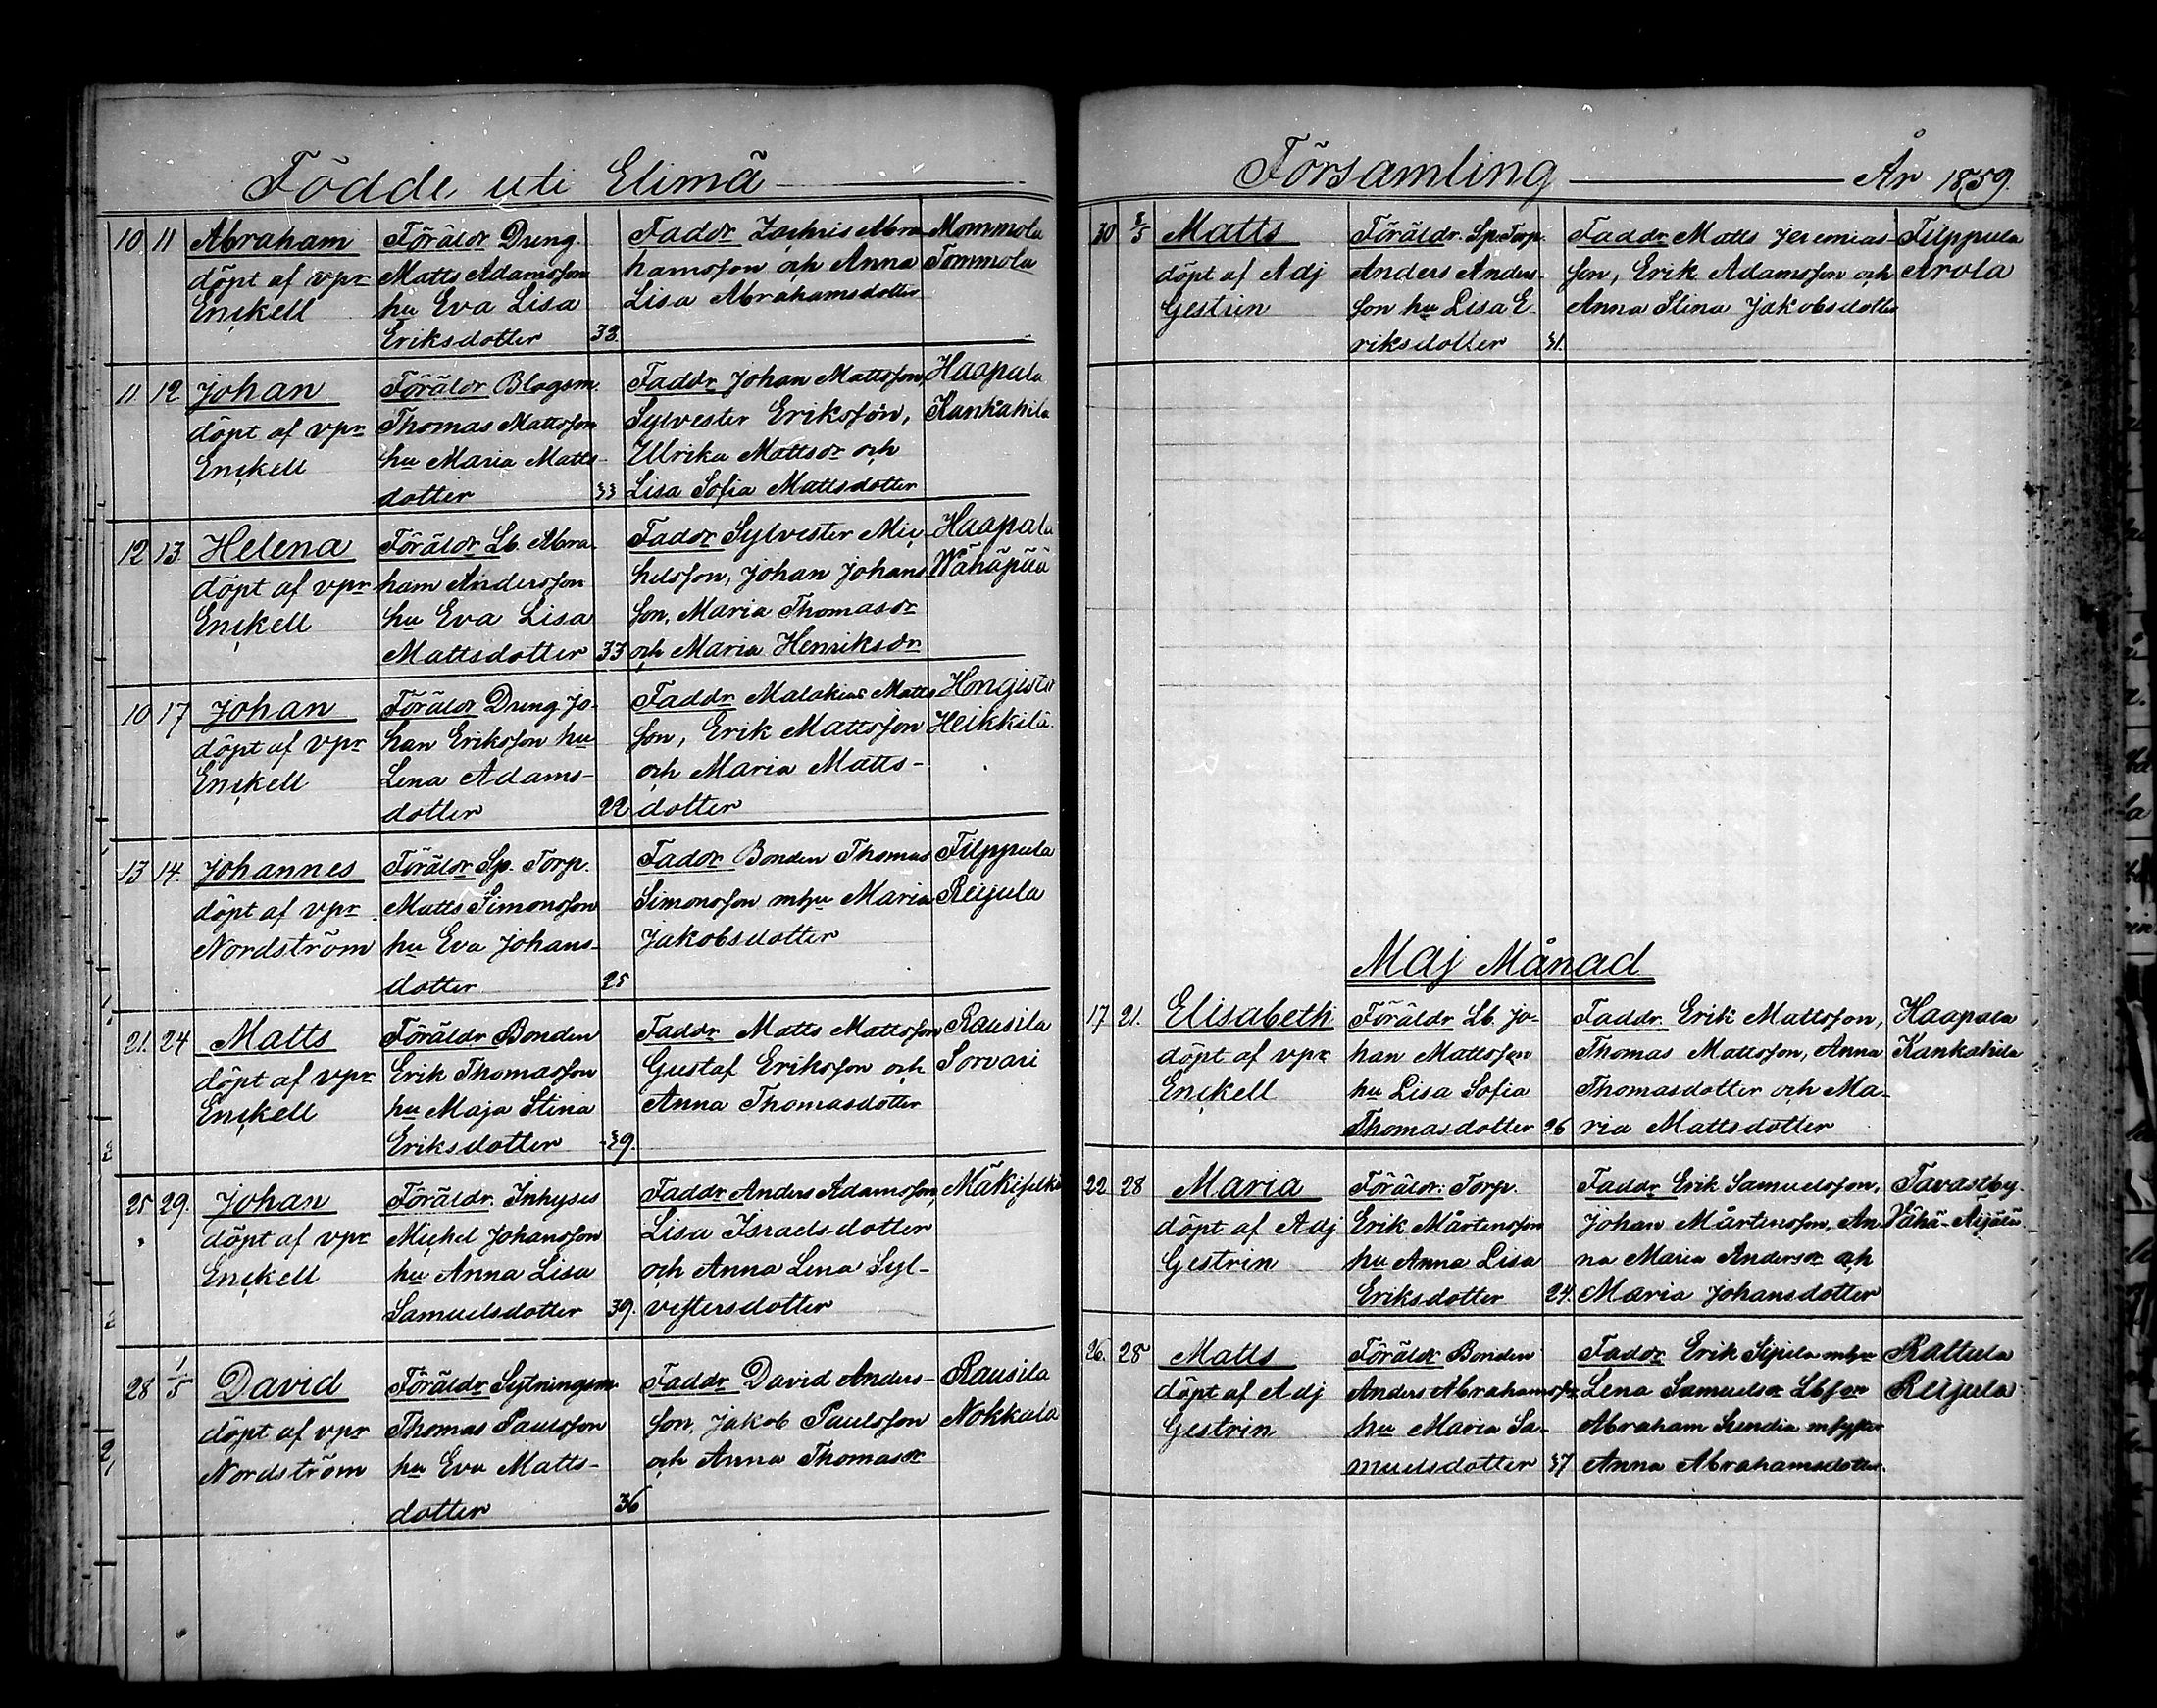 Födde uti Elimä
10. 11 Abraham Föräldr Dreng. Faddr Zachris Abra Mommola
döpt af vpr Matts Adamsson hamsson och Anna Tommola
Enckell hu Eva Lisa Lisa Abrahamsdotter
Eriksdotter 33.
11 12 Johan Föräldr Blagsm. Faddr Johan Mattsson, Haapala
döpt af vpr Thomas Mattsson Sylvester Eriksson, Kankahila
Enckell hu Maria Matts- Ulrika Mattsdr och
dotter 33 Lisa Sofia Mattsdotter
12 13 Helena Föräldr Lb. Abra- Faddr Sylvester Mic Haapala
döpt af vpr ham Andersson helsson, Johan Johans Wähäpää
Enckell hu Eva Lisa son, Maria Thomasdr
Mattsdotter 33 och Maria Henriksdr
10 17 Johan Föräldr Dreng. Jo- Faddr Malakias Matts Hongisto
döpt af vpr han Eriksson hu son, Erik Mattsson Heikkilä
Enckell Lena Adams- och Maria Matts-
dotter 22 dotter
13 14. Johannes Föräldr Sp. Torp. Faddr Bonden Thomas Filppula
döpt af vpr Matts Simonsson Simonsson mhu Maria Reijula
Nordström hu Eva Johans- Jakobsdotter
dotter 25
21. 24 Matts Föräldr Bonden Faddr Matts Mattsson, Rausila
döpt af vpr Erik Thomasson Gustaf Eriksson och Sorvari
Enckell hu Maja Stina Anna Thomasdotter
Eriksdotter 39.
25 29. Johan Föräldr. Inhyses Faddr Anders Adamsson,
döpt af vpr Michel Johansson Lisa Israelsdotter
Enckell hu Anna Lisa och Anna Lena Syl-
Samuelsdotter 39. vestersdotter
28 1/5 David Föräldr Sytningsm Faddr David Anders- Rausila
döpt af vpr Thomas Paulsson son, Jakob Paulsson Nokkala
Nordström hu Eva Matts- och Anna Thomasdr
dotter 36
Församling År 1859.
30 8/5 Matts Föräldr. Sp. Torp. Faddr Matts Jeremias- Filppula
döpt af Adj Anders Anders- son, Erik Adamsson och Arola
Gestrin son hu Lisa E Anna Stina Jakobsdotter
riksdotter 31.
Maj Månad
17 21. Elisabeth Föräldr Lb. Jo- Faddr. Erik Mattsson, Haapala
döpt af vpr han Mattsson Thomas Mattsson, Anna Kankahila
Enckell hu Lisa Sofia Thomasdotter och Ma-
Thomasdotter 26 ria Mattsdotter
22 28 Maria Föräldr: Torp. Faddr Erik Samuelsson, Tavastby.
döpt af Adj Erik Mårtensson Johan Mårtensson, An Vähä-Aijälä
Gestrin hu Anna Lisa na Maria Andersdr och
Eriksdotter 24. Maria Johansdotter
26. 28 Matts Föräldr Bonden Faddr Erik Sipila mhu Rattula
döpt af Adj Anders Abrahamsson Lena Samuelsdr Lbson Reijula
Gestrin hu Maria Sa- Abraham Sundia
muelsdotter 37 Anna Abrahamsdotter.